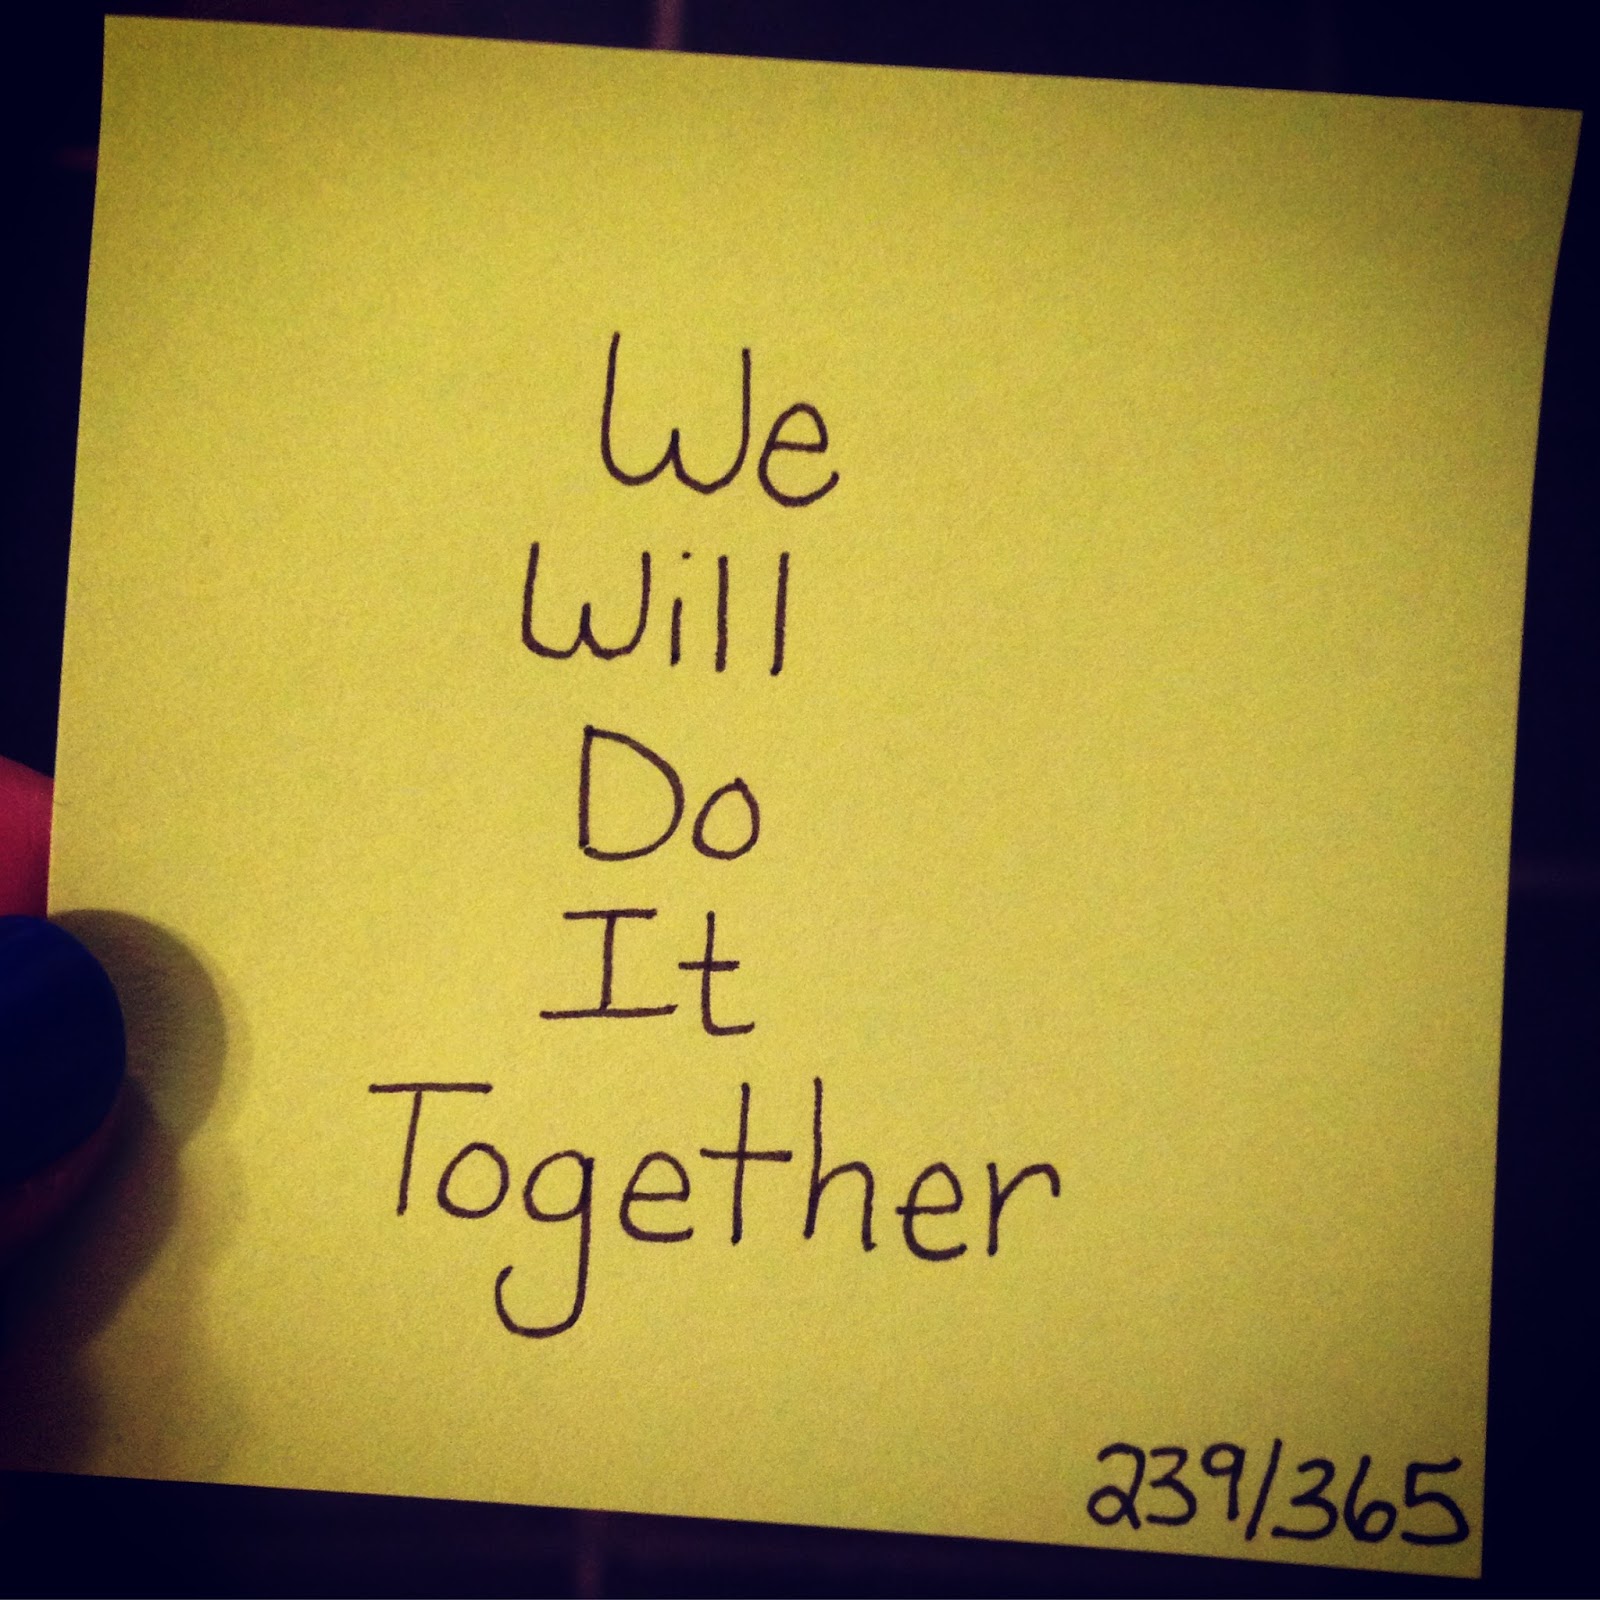 We
Will
Do
It
Together
239/365